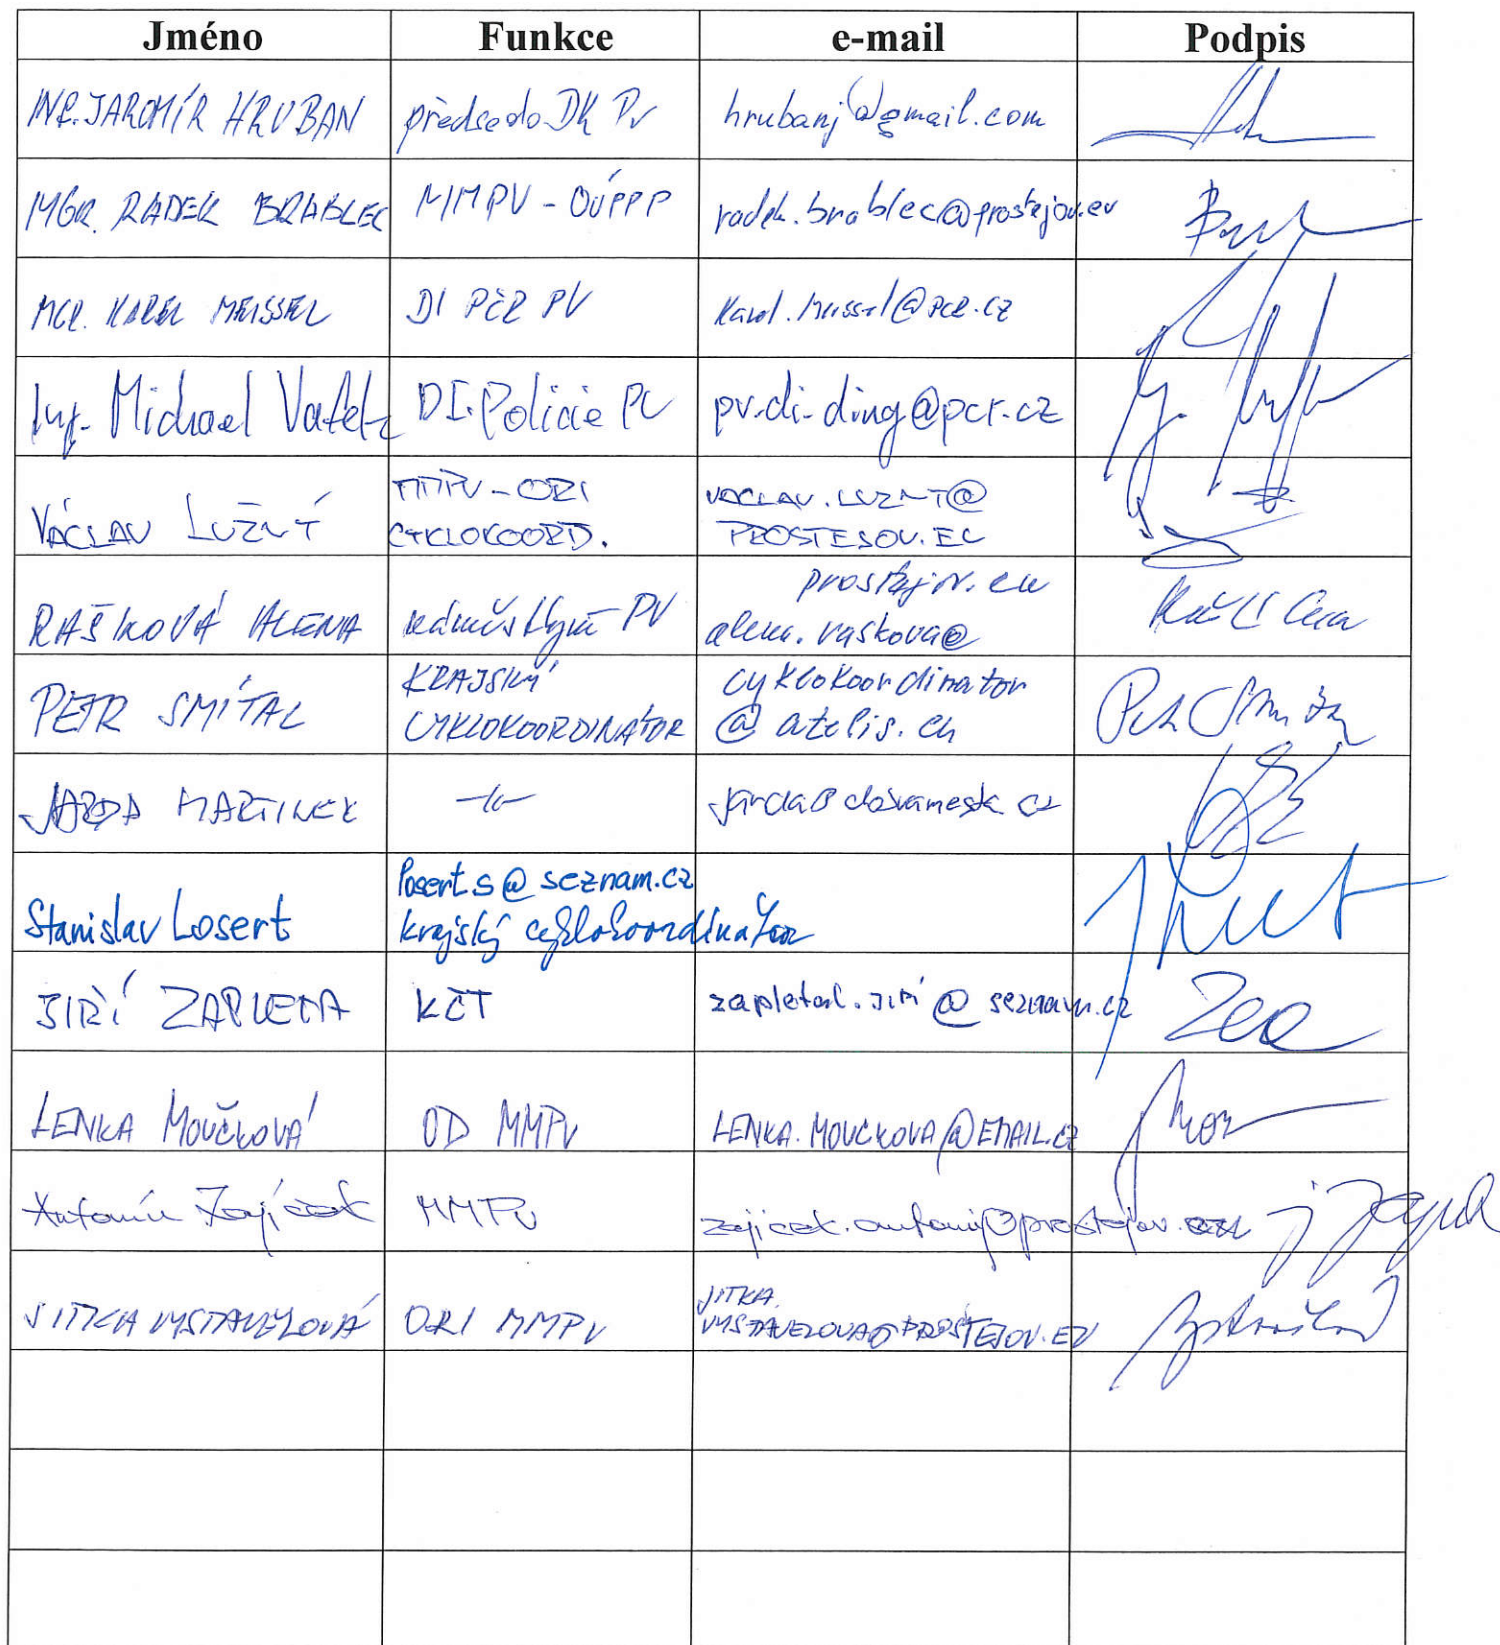 Jméno Funkce e-mail Podpis
ING. JAROMÍR HRUBAN předseda DK PV hrubanj@gmail.com
MGR. RADEK BRABLEC MMPV - OÚPPP radek.brablec@prostejov.eu
MGR. KAREL MEISSEL DI PČR PV karel.meissel@pcr.cz
Ing. Michael Vafek DI Policie PV pv.di-ding@pcr.cz
VÁCLAV LUŽNÝ MMPV - ORI VACLAV.LUZNY@
CYKLOKOORD. PROSTEJOV.EU
prostejov.eu
RAŠKOVÁ ALENA náměstkyně PV alena.raskova@
PETR SMÍTAL KRAJSKÝ cyklokoordinator
CYKLOKOORDINÁTOR @ atelis.eu
JARDA MARTINEK -//- jarda@dobramesta.cz
losert.s@seznam.cz
Stanislav Losert krajský cyklokoordinátor
JIŘÍ ZAPLETAL KČT zapletal.jiri@seznam.cz
LENKA MOUČKOVÁ OD MMPV LENKA.MOUCKOVA@EMAIL.CZ
Antonín Zajíček MMPV zajicek.antonin@prostejov.eu
JITKA.
JITKA VYSTAVĚLOVÁ ORI MMPV VYSTAVELOVA@PROSTEJOV.EU